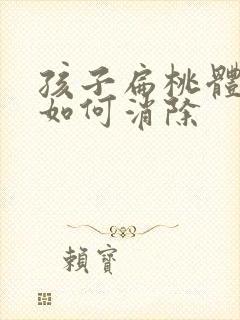 孩子扁桃體
如何消除
賴寶